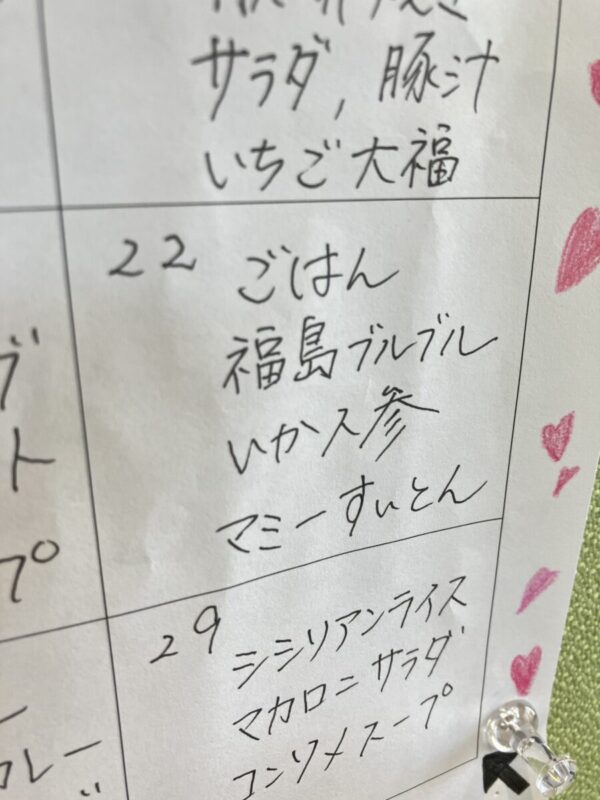 サラダ, 豚汁
いちご大福
22 ごはん
福島ブルブル
いか人参
マミーすいとん
29 シシリアンライス
マカロニサラダ
コンソメスープ
ブ
ト
プ
カレー